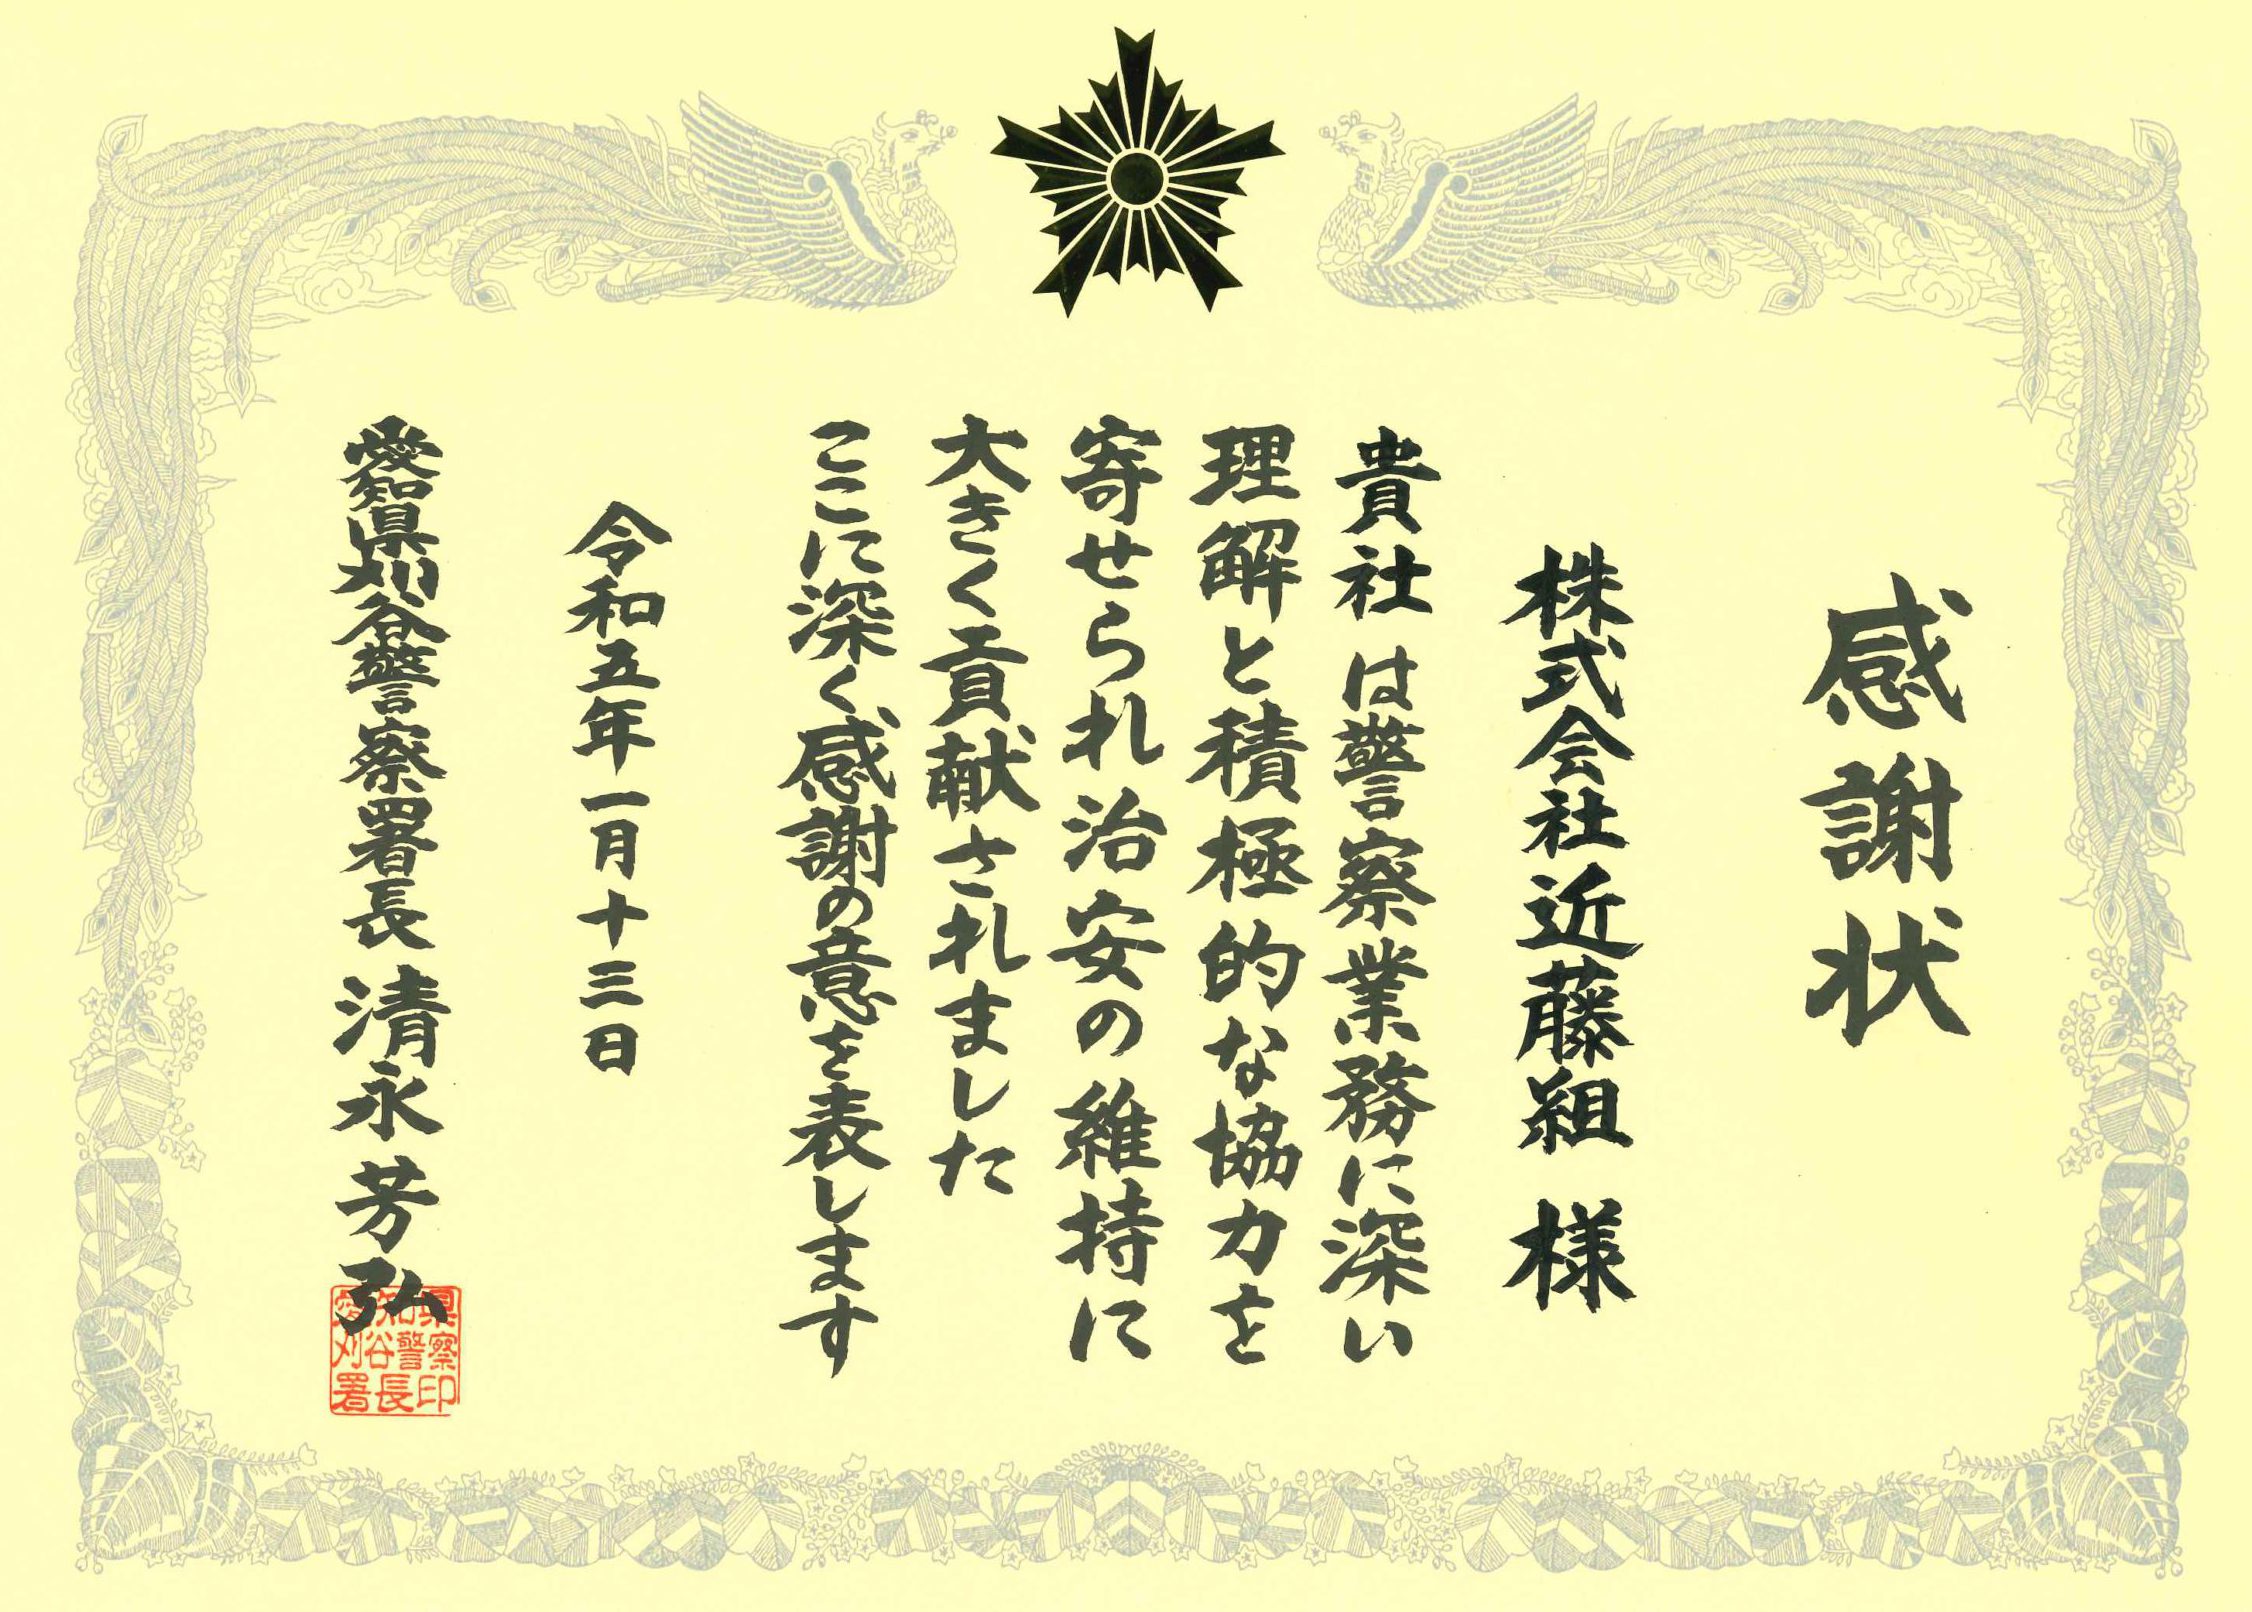 感謝状
株式会社近藤組 様
貴社は警察業務に深い
理解と積極的な協力を
寄せられ治安の維持に
大きく貢献されました
ここに深く感謝の意を表します
令和五年一月十三日
愛知県刈谷警察署長 清永芳弘
愛知県
刈谷警察
署長印